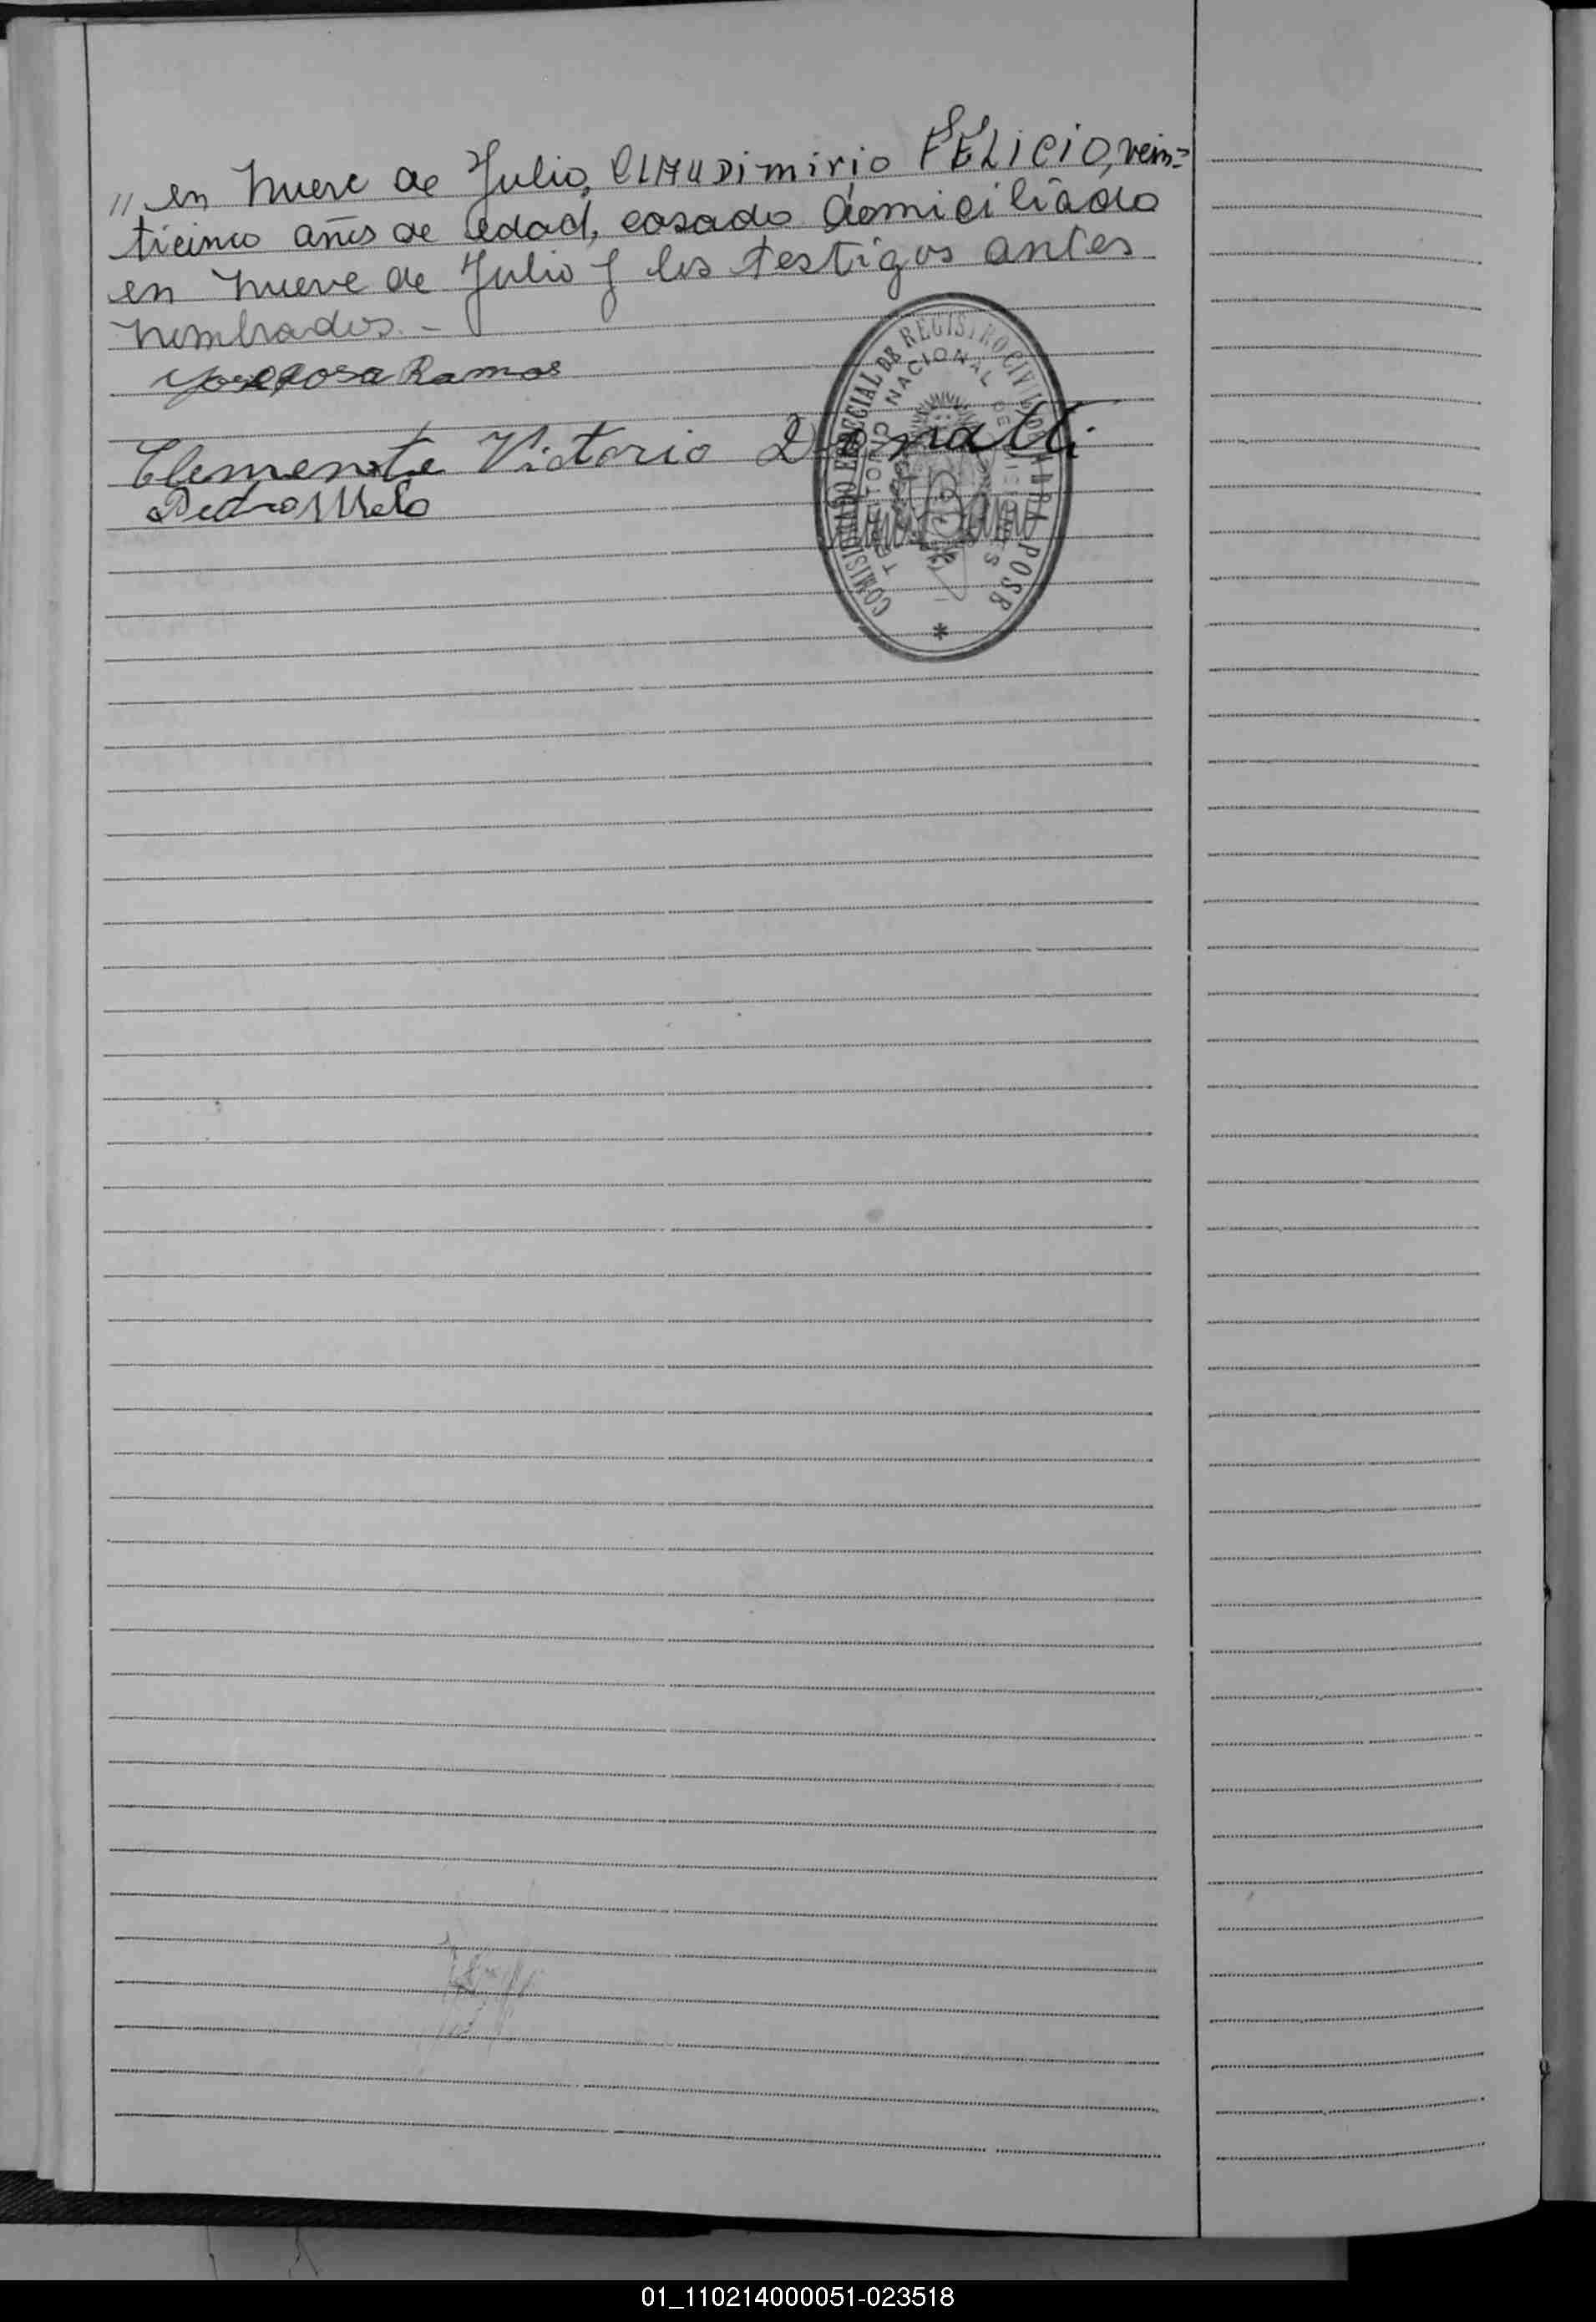 // en Nueve de Julio, CLAUDimirio FELiCiO, vein=
ticinco años de edad, casado domiciliado
en Nueve de Julio y los testigos antes
nombrados. -
Jose Rosa Ramos
Clemente Victorio Donatti
Pedro Melo
COMISIONADO ESPECIAL DE REGISTRO CIVIL
TERRITORIO NACIONAL DE MISIONES
01_110214000051-023518